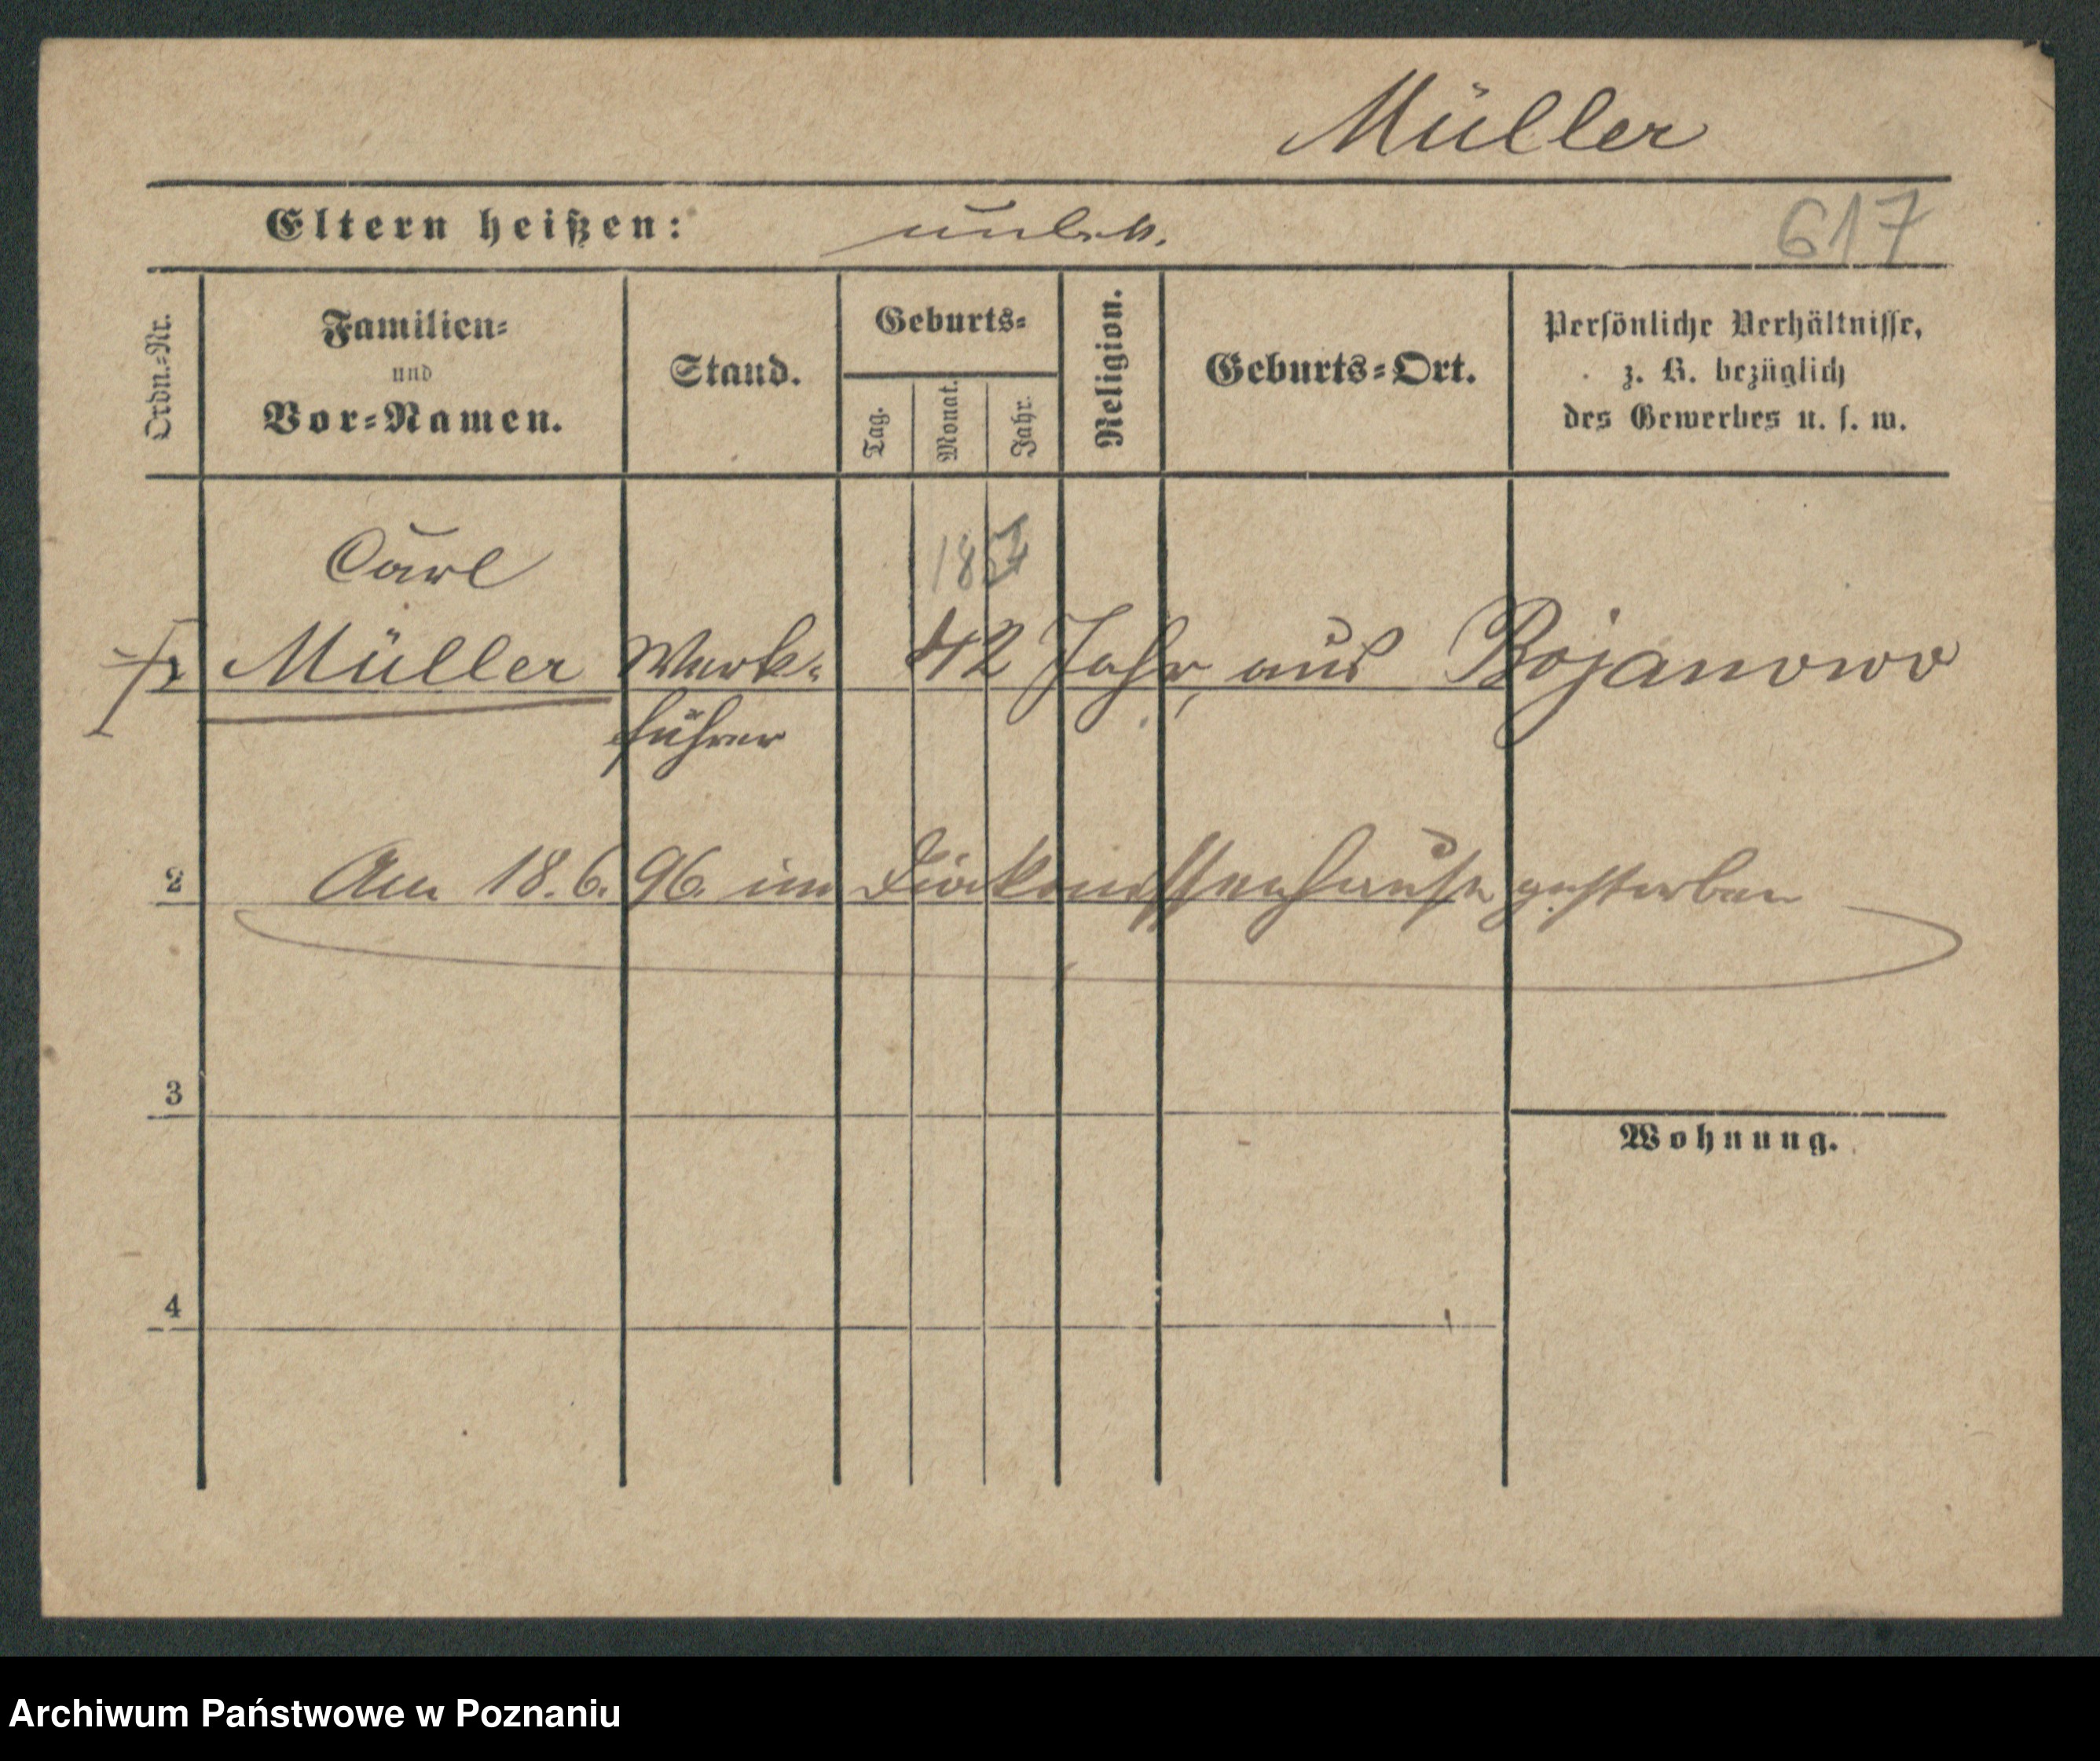 Müller
Eltern heißen: unbek.
617
Ordn.-Nr.
Familien- und Vor-Namen.
Stand.
Geburts-
Tag.
Monat.
Jahr.
Religion.
Geburts-Ort.
Persönliche Verhältnisse,
z. B. bezüglich
des Gewerbes u. s. w.
Carl
Müller Werk- 42 Jahr, aus Bojanowo
führer
2 Am 18.6.96. im Diakonissenhause gestorben
3
Wohnung.
4
Archiwum Państwowe w Poznaniu